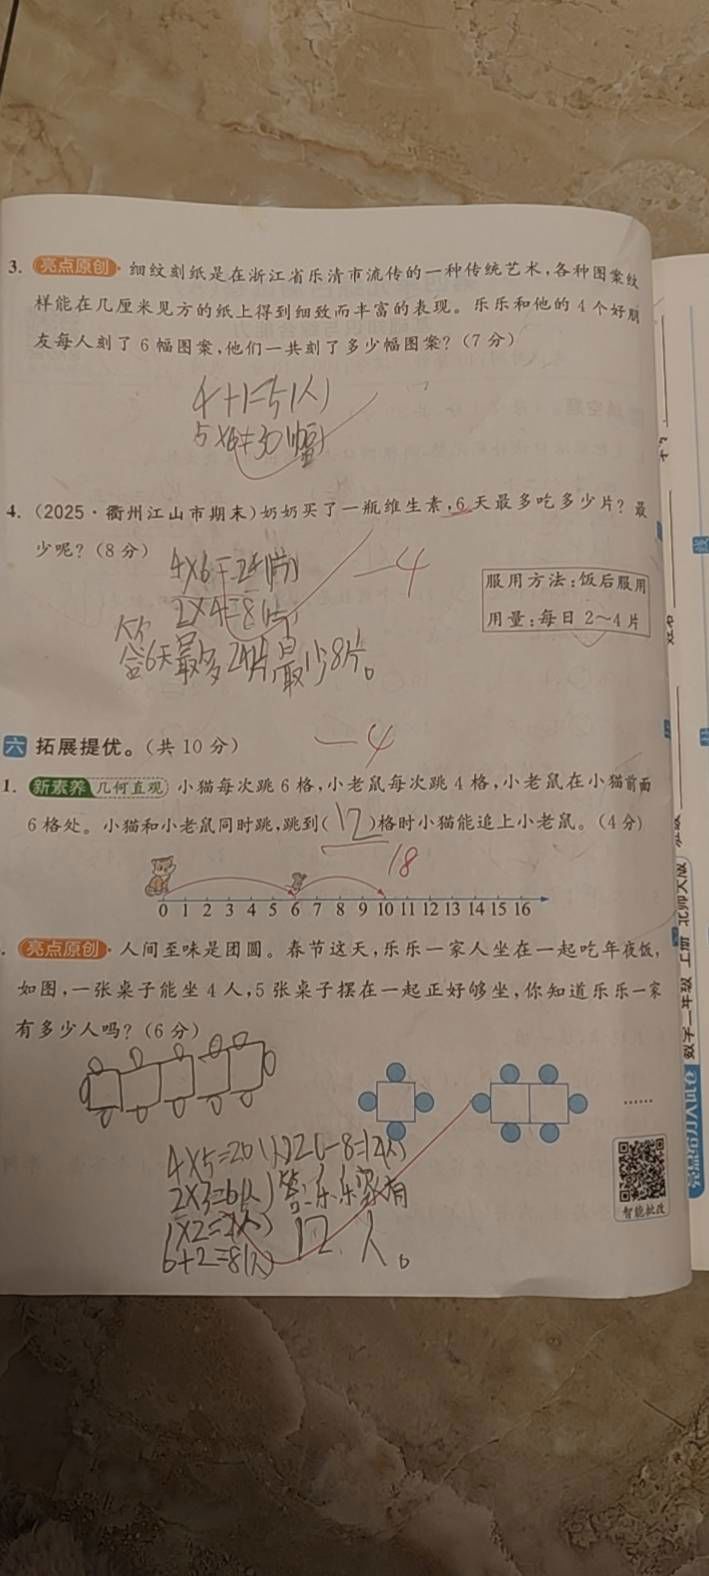 3. 亮点原创·细纹刻纸是在浙江省乐清市流传的一种传统艺术,各种图案纹
样能在几厘米见方的纸上得到细致而丰富的表现。乐乐和他的4个好朋
友每人刻了6幅图案,他们一共刻了多少幅图案?(7分)
4+1=5(人)
5×6=30(幅)
4. (2025·衢州江山市期末)奶奶买了一瓶维生素,6天最多吃多少片?最
少呢?(8分)
4×6=24(片)
-4
服用方法:饭后服用
2×4=8(片)
用量:每日2~4片
答6天最多24片,最少8片。
六 拓展提优。(共10分)
-4
1. 新素养 几何直观 小猫每次跳6格,小老鼠每次跳4格,小老鼠在小猫前面
6格处。小猫和小老鼠同时跳,跳到(12)格时小猫能追上小老鼠。(4分)
18
0 1 2 3 4 5 6 7 8 9 10 11 12 13 14 15 16
亮点原创·人间至味是团圆。春节这天,乐乐一家人坐在一起吃年夜饭,
如图,一张桌子能坐4人,5张桌子摆在一起正好够坐,你知道乐乐一家
有多少人吗?(6分)
……
4×5=20(人)20-8=12(人)
2×3=6(人)答:乐乐家有
1×2=2(人) 12人。
6+2=8(人)
智能批改
数学二年级 上册 北师大版